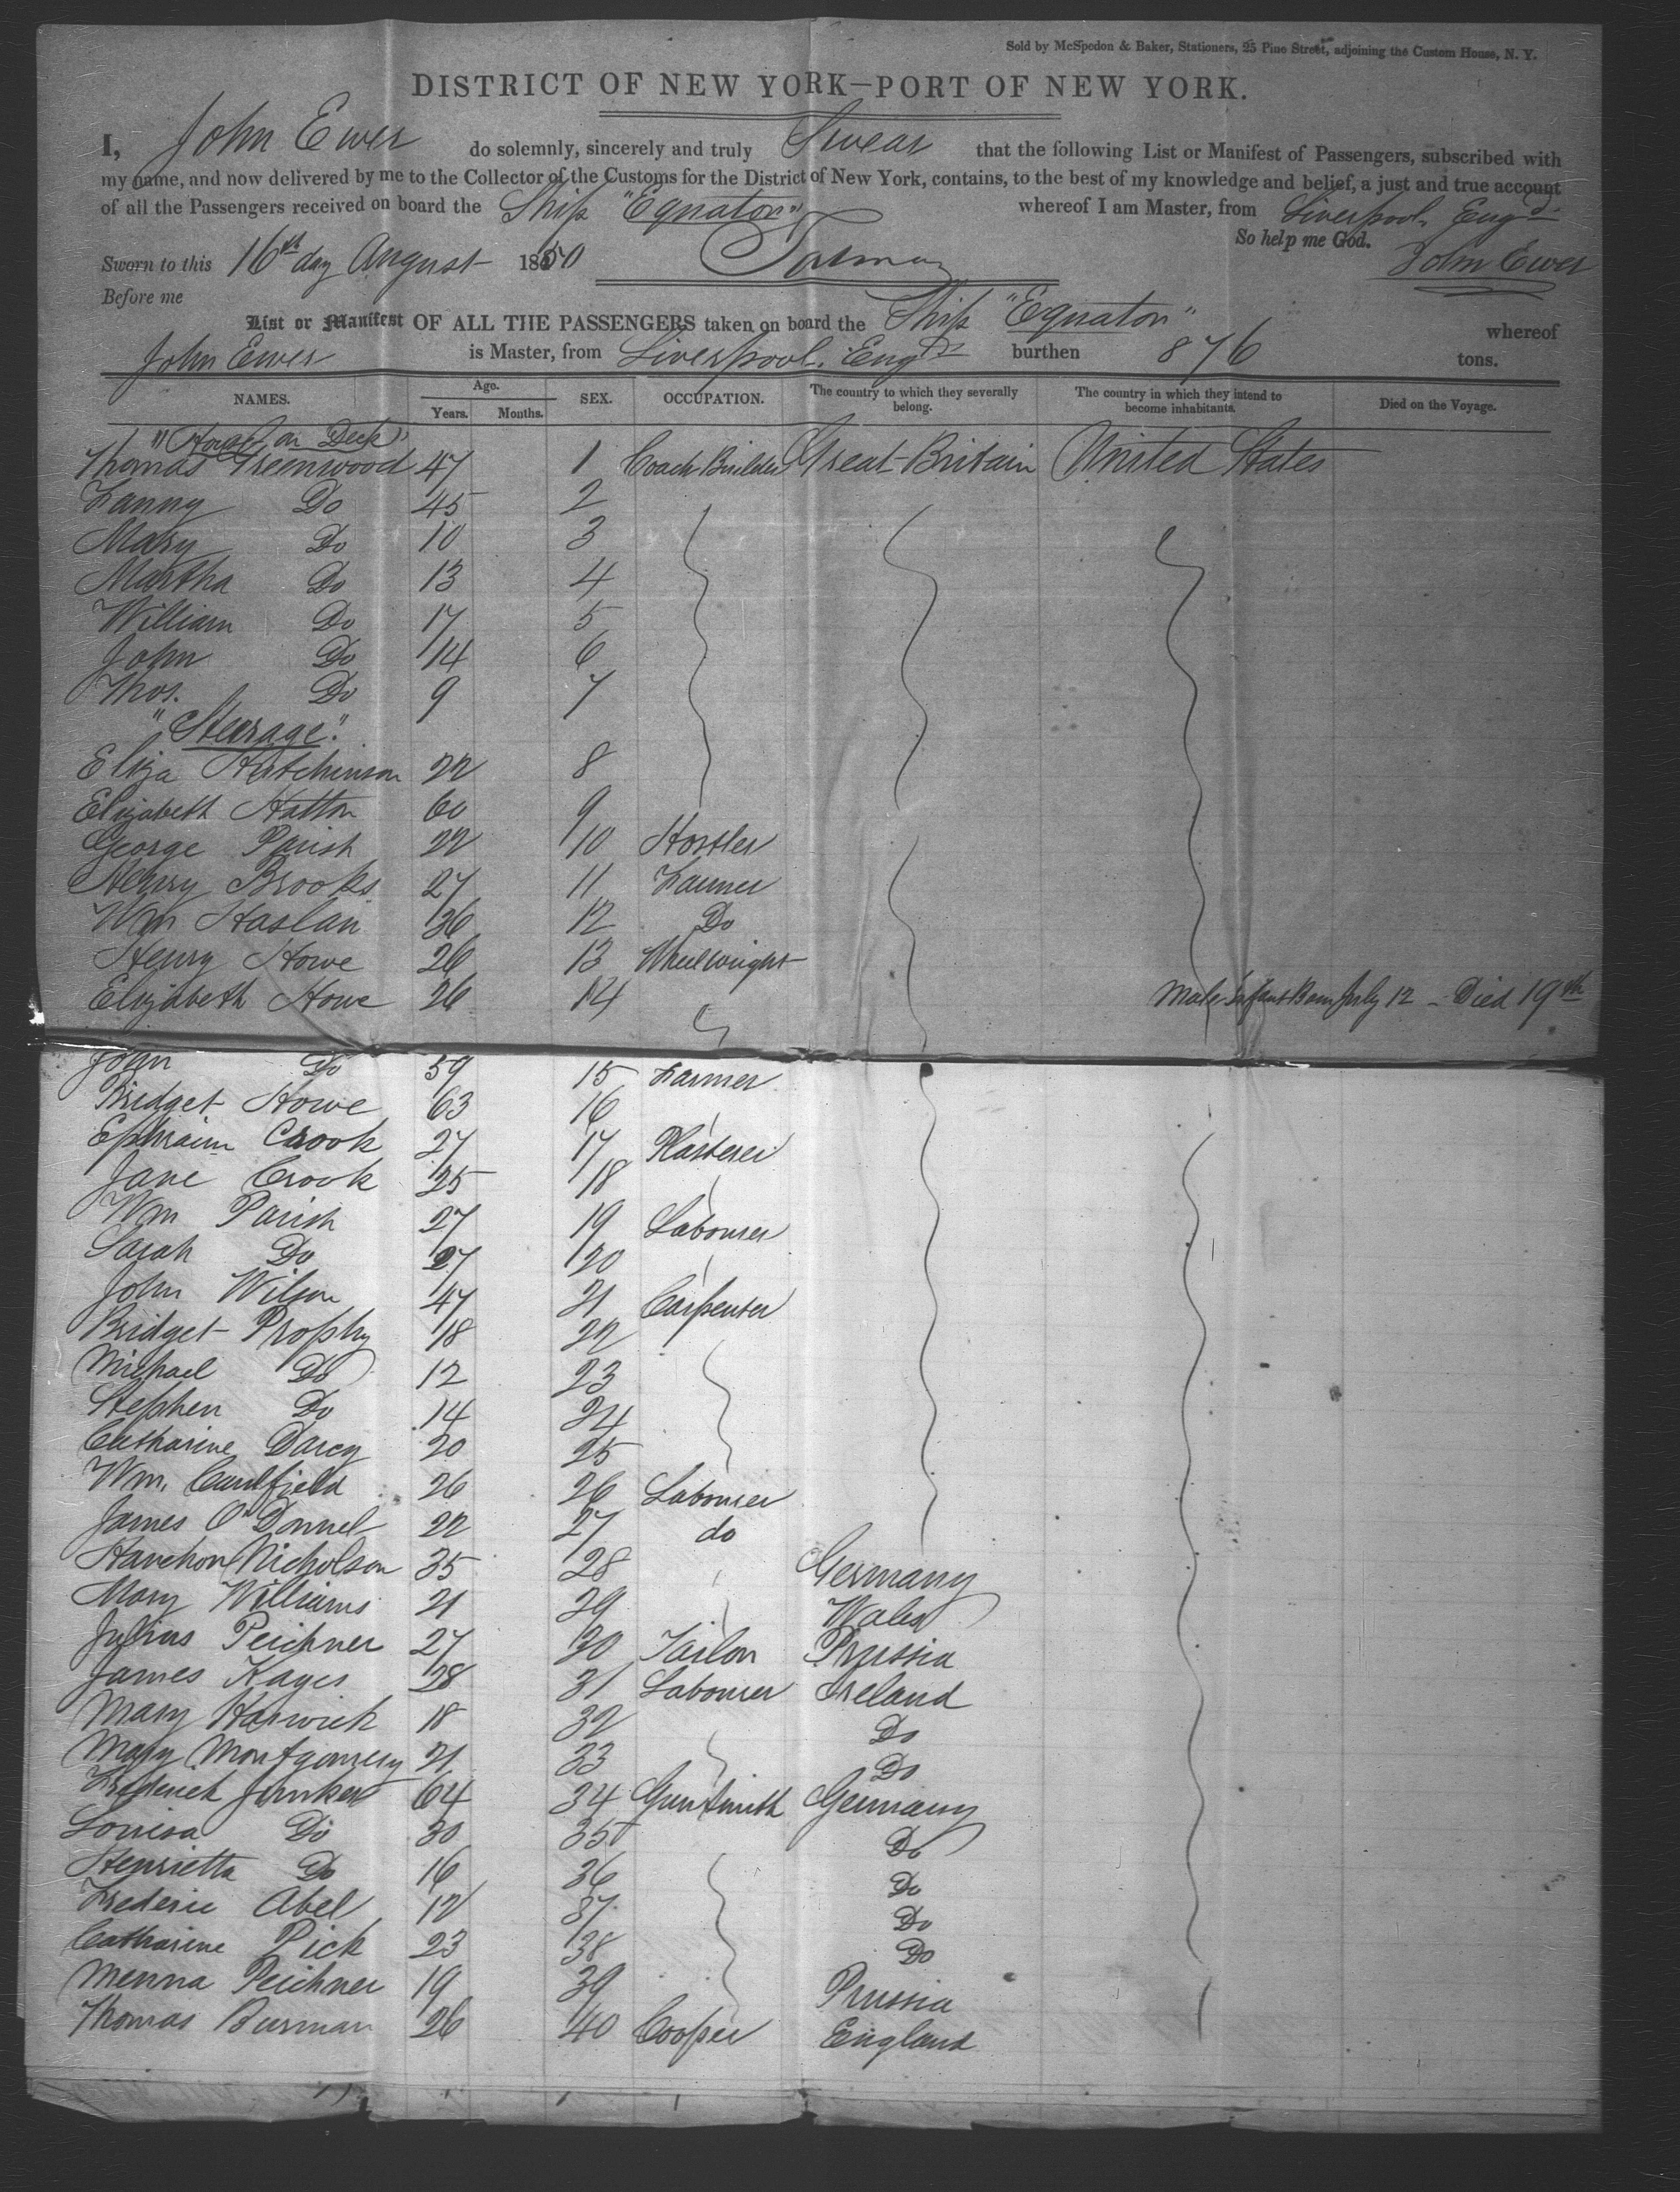 Sold by McSpedon & Baker, Stationers, 25 Pine Street, adjoining the Custom House, N. Y.
DISTRICT OF NEW YORK—PORT OF NEW YORK.
I, John Ewer do solemnly, sincerely and truly Swear that the following List or Manifest of Passengers, subscribed with
my name, and now delivered by me to the Collector of the Customs for the District of New York, contains, to the best of my knowledge and belief, a just and true account
of all the Passengers received on board the Ship "Equator" whereof I am Master, from Liverpool, Engd
So help me God.
Sworn to this 16th day August 1850 John Ewer
Before me
List or Manifest OF ALL THE PASSENGERS taken on board the Ship "Equator" whereof
John Ewer is Master, from Liverpool. Engd burthen 876 tons.
NAMES. Age. Years. Months. SEX. OCCUPATION. The country to which they severally belong. The country in which they intend to become inhabitants. Died on the Voyage.
"House on Deck"
Thomas Greenwood 47 1 Coach Builder Great Britain United States
Fanny Do 45 2
Mary Do 10 3
Martha Do 13 4
William Do 17 5
John Do 14 6
Thos. Do 9 7
"Steerage".
Eliza Hutchinson 22 8
Elizabeth Hatton 60 9
George Parish 22 10 Hostler
Henry Brooks 27 11 Farmer
Wm Haslam 36 12 Do
Henry Howe 26 13 Wheelwright
Elizabeth Howe 26 14 Male Infant Born July 12 - Died 19th
John Do 59 15 Farmer
Bridget Howe 63 16
Ephraim Crook 27 17 Plasterer
Jane Crook 25 18
Wm Parish 27 19 Labourer
Sarah Do 27 20
John Wilson 47 21 Carpenter
Bridget Prophy 18 22
Michael Do 12 23
Stephen Do 14 24
Catharine Darcy 20 25
Wm. Caulfield 26 26 Labourer
James O'Donnel 22 27 do
Nicholson 35 28 Germany
Mary Williams 21 29 Wales
Julius Peichner 27 30 Tailor Prussia
James Kayes 28 31 Labourer Ireland
Mary Harwick 18 32 Do
Mary Montgomery 21 33 Do
Frederick Junker 64 34 Gunsmith Germany
Louisa Do 30 35 Do
Henrietta Do 16 36 Do
Frederic Abel 12 37 Do
Catharine Pick 23 38 Do
Menna Peichner 19 39 Prussia
Thomas Burman 26 40 Cooper England